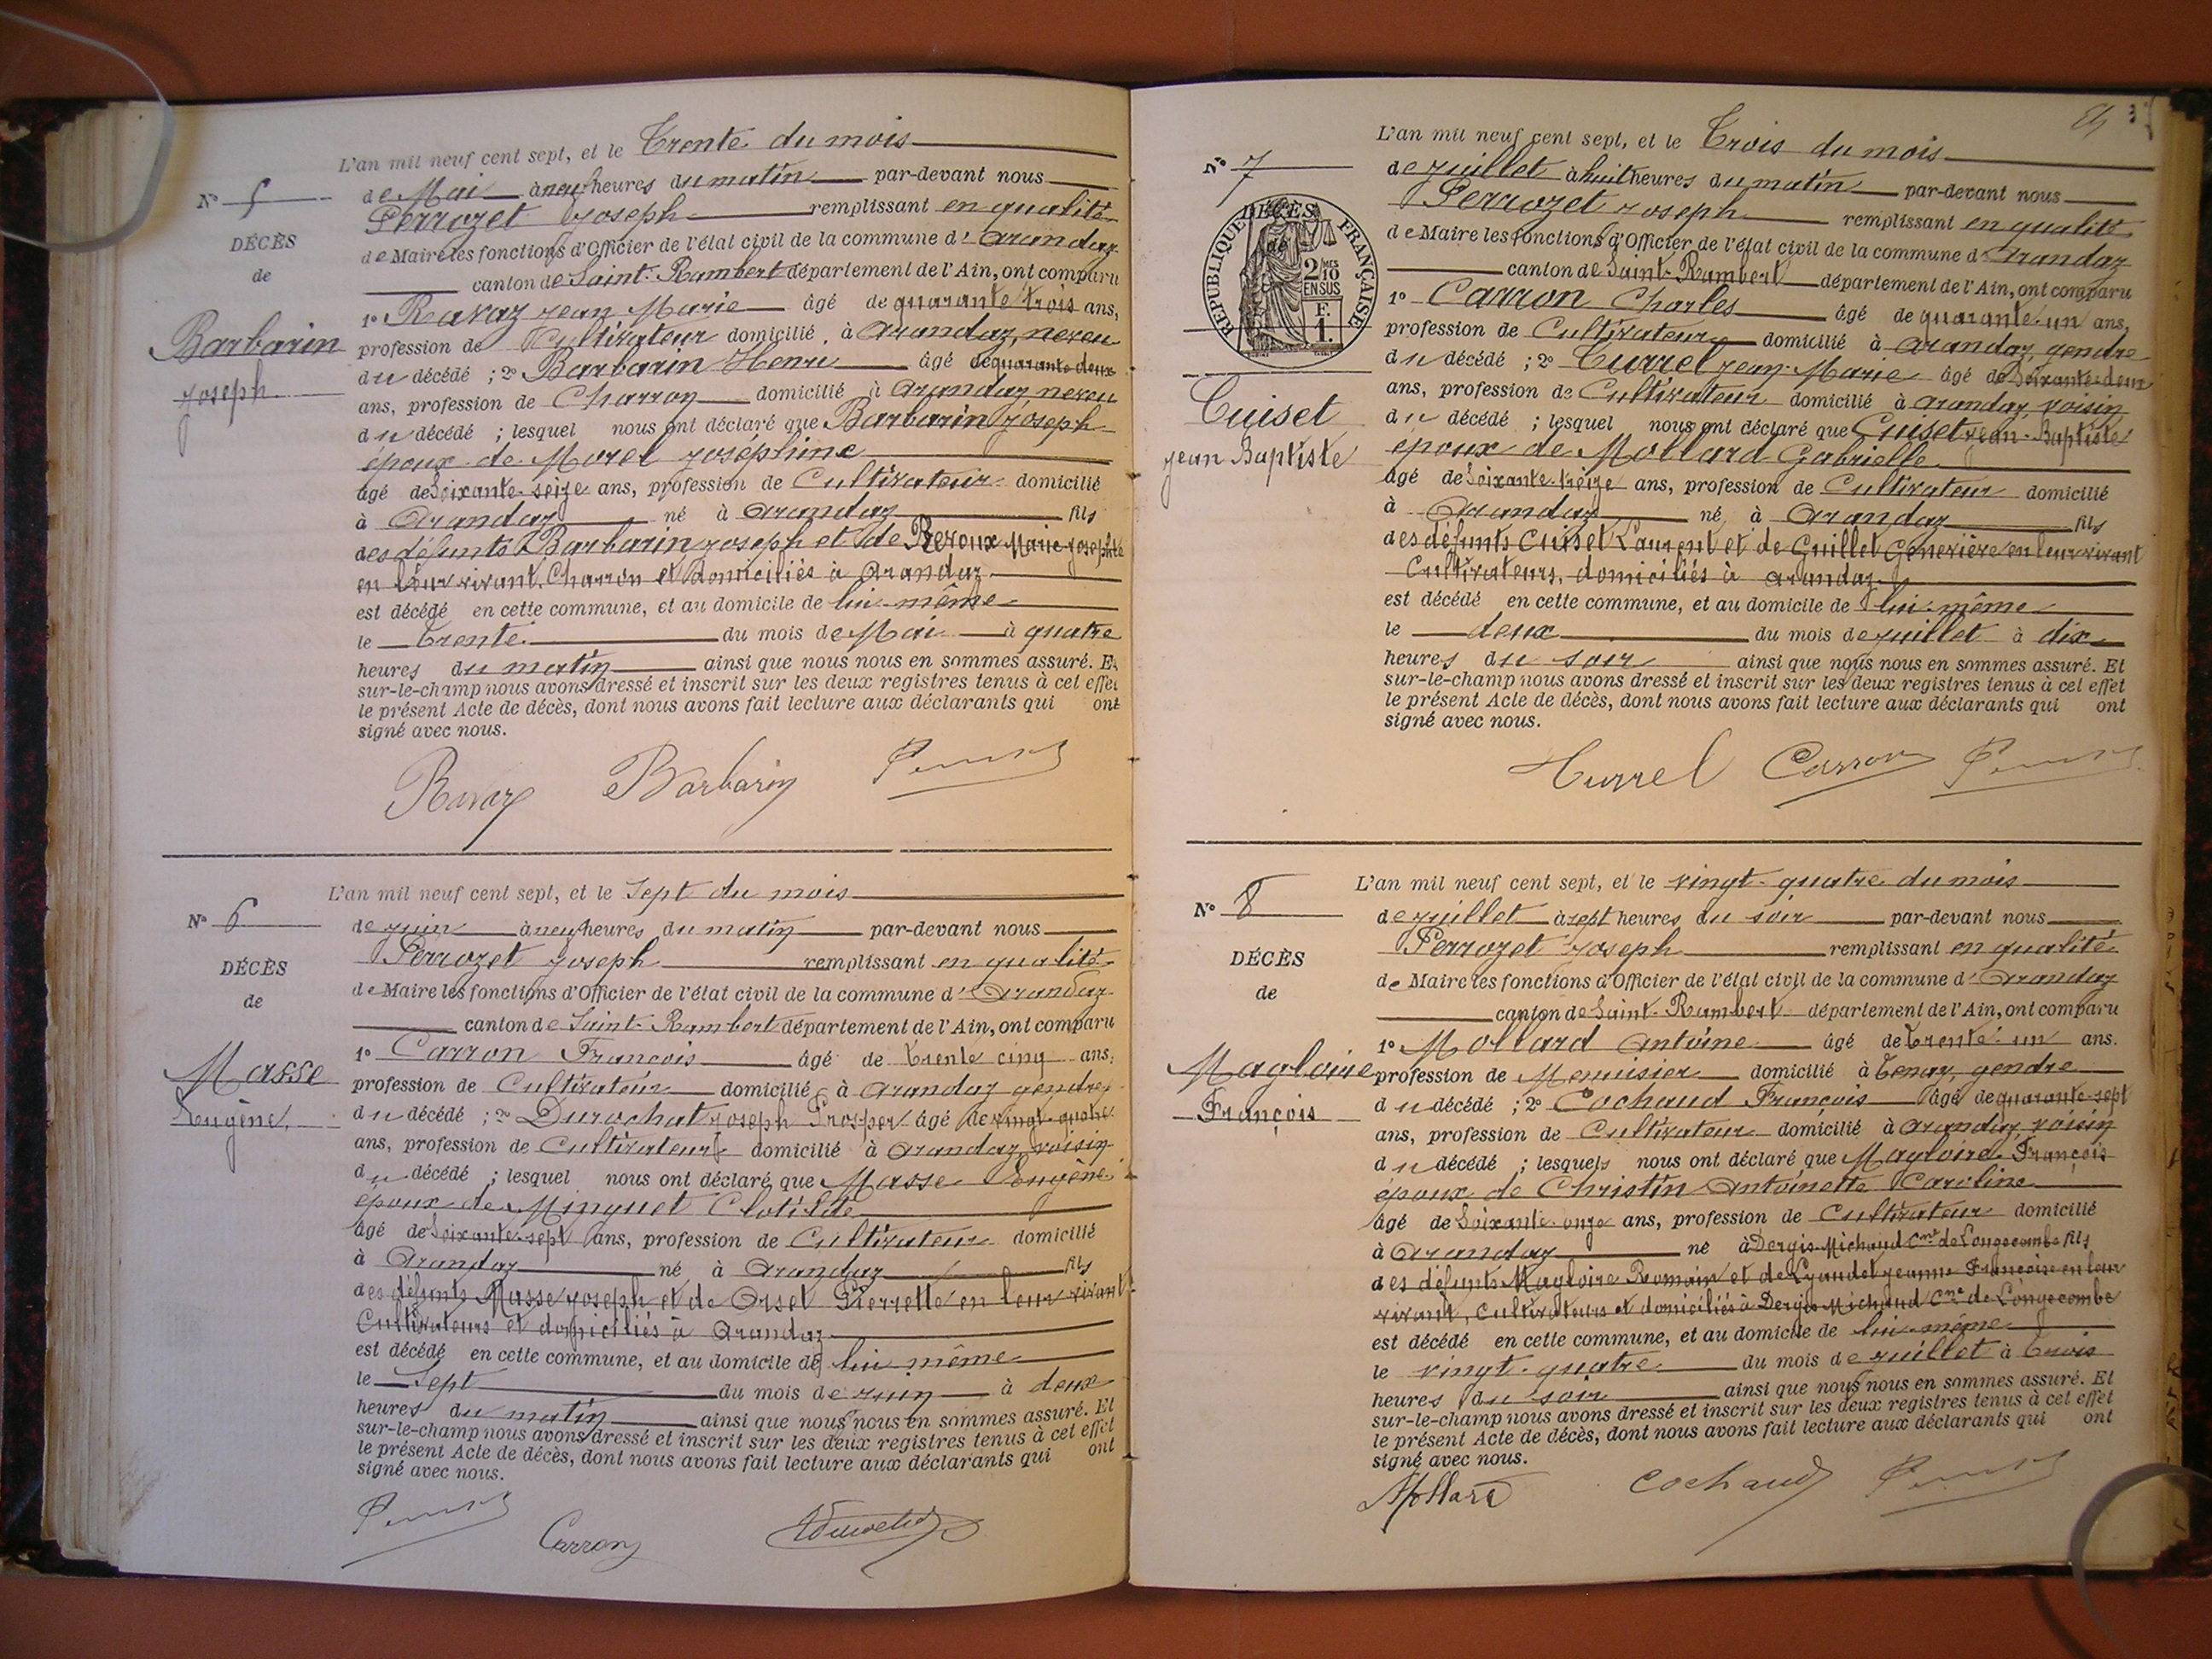 L'an mil neuf cent sept, et le Trente du mois
N° 5
de Mai à neuf heures du matin par-devant nous
Perrozet Joseph remplissant en qualité
DÉCÈS
de Maire les fonctions d'Officier de l'état civil de la commune d'Arandaz
de
canton de Saint-Rambert département de l'Ain, ont comparu
1° Ravaz Jean Marie âgé de quarante trois ans,
Barbarin
profession de Cultivateur domicilié à Arandaz, neveu
du décédé ; 2° Barbarin Henri âgé de quarante deux
Joseph
ans, profession de Charron domicilié à Arandaz neveu
du décédé ; lesquel nous ont déclaré que Barbarin Joseph
époux de Morel Joséphine
âgé de Soixante-seize ans, profession de Cultivateur domicilié
à Arandaz né à Arandaz fils
des défunts Barbarin Joseph et de Reroux Marie Josephte
en leur vivant Charron et domiciliés à Arandaz
est décédé en cette commune, et au domicile de lui-même
le Trente du mois de Mai à quatre
heures du matin ainsi que nous nous en sommes assuré. Et
sur-le-champ nous avons dressé et inscrit sur les deux registres tenus à cet effet
le présent Acte de décès, dont nous avons fait lecture aux déclarants qui ont
signé avec nous.
Ravaz Barbarin
L'an mil neuf cent sept, et le Sept du mois
N° 6
de Juin à neuf heures du matin par-devant nous
Perrozet Joseph remplissant en qualité
DÉCÈS
de Maire les fonctions d'Officier de l'état civil de la commune d'Arandaz
de
canton de Saint-Rambert département de l'Ain, ont comparu
1° Carron François âgé de trente cinq ans,
Masse
profession de Cultivateur domicilié à Arandaz gendre
Eugène
du décédé ; 2° Durochat Joseph Prosper âgé de vingt-quatre
ans, profession de Cultivateur domicilié à Arandaz, voisin
du décédé ; lesquel nous ont déclaré que Masse Eugène
époux de Minguet Clotilde
âgé de Soixante-sept ans, profession de Cultivateur domicilié
à Arandaz né à Arandaz fils
des défunts Masse Joseph et de Orset Pierrette en leur vivant
Cultivateurs et domiciliés à Arandaz
est décédé en cette commune, et au domicile de lui-même
le Sept du mois de Juin à deux
heures du matin ainsi que nous nous en sommes assuré. Et
sur-le-champ nous avons dressé et inscrit sur les deux registres tenus à cet effet
le présent Acte de décès, dont nous avons fait lecture aux déclarants qui ont
signé avec nous.
Carron
L'an mil neuf cent sept, et le Trois du mois
N° 7
de Juillet à huit heures du matin par-devant nous
Perrozet Joseph remplissant en qualité
DÉCÈS
de
RÉPUBLIQUE FRANÇAISE
2 MES 10 EN SUS
F. 1.
de Maire les fonctions d'Officier de l'état civil de la commune d'Arandaz
canton de Saint-Rambert département de l'Ain, ont comparu
1° Carron Charles âgé de quarante-un ans,
profession de Cultivateur domicilié à Arandaz, gendre
du décédé ; 2° Currel Jean-Marie âgé de Soixante-deux
ans, profession de Cultivateur domicilié à Arandaz, voisin
Cuiset
du décédé ; lesquel nous ont déclaré que Cuiset Jean-Baptiste
Jean Baptiste
époux de Mollard Gabrielle
âgé de Soixante-treize ans, profession de Cultivateur domicilié
à Arandaz né à Arandaz fils
des défunts Cuiset Laurent et de Guillet Geneviève en leur vivant
Cultivateurs, domiciliés à Arandaz
est décédé en cette commune, et au domicile de lui-même
le deux du mois de Juillet à dix
heures du soir ainsi que nous nous en sommes assuré. Et
sur-le-champ nous avons dressé et inscrit sur les deux registres tenus à cet effet
le présent Acte de décès, dont nous avons fait lecture aux déclarants qui ont
signé avec nous.
Currel Carron
L'an mil neuf cent sept, et le vingt-quatre du mois
N° 8
de Juillet à sept heures du soir par-devant nous
Perrozet Joseph remplissant en qualité
DÉCÈS
de Maire les fonctions d'Officier de l'état civil de la commune d'Arandaz
de
canton de Saint-Rambert département de l'Ain, ont comparu
1° Mollard Antoine âgé de Trente-un ans.
Magloire
profession de Menuisier domicilié à Tenay, gendre
François
du décédé ; 2° Cochaud François âgé de quarante-sept
ans, profession de Cultivateur domicilié à Arandaz, voisin
du décédé ; lesquels nous ont déclaré que Magloire François
époux de Christin Antoinette Caroline
âgé de Soixante-onze ans, profession de Cultivateur domicilié
à Arandaz né à Dergis-Michaud Cne de Longecombe fils
des défunts Magloire Romain et de Lyaudet Jeanne Françoise en leur
vivant, Cultivateurs et domiciliés à Dergis-Michaud Cne de Longecombe
est décédé en cette commune, et au domicile de lui-même
le vingt-quatre du mois de Juillet à trois
heures du soir ainsi que nous nous en sommes assuré. Et
sur-le-champ nous avons dressé et inscrit sur les deux registres tenus à cet effet
le présent Acte de décès, dont nous avons fait lecture aux déclarants qui ont
signé avec nous.
Mollard Cochaud